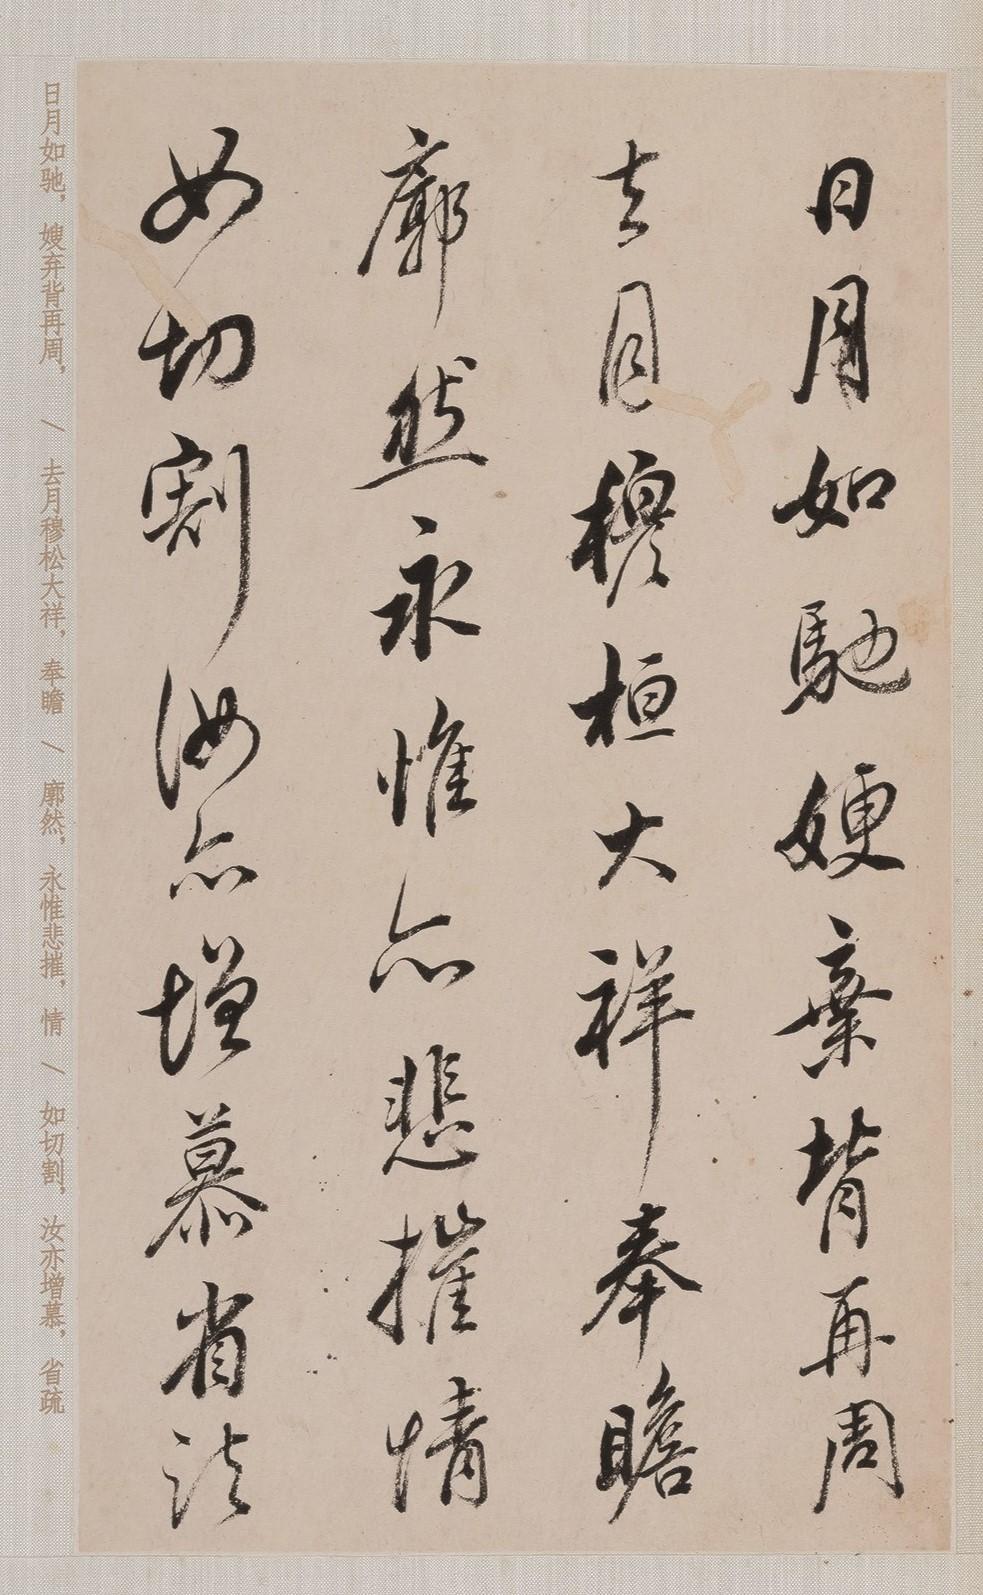 日月如馳嫂棄背再周
去月穆桓大祥奉瞻
廓然永惟亦悲摧情
如切割汝亦增慕省
日月如驰，嫂弃背再周， / 去月穆松大祥，奉瞻 / 廓然，永惟悲摧，情 / 如切割，汝亦增慕，省疏